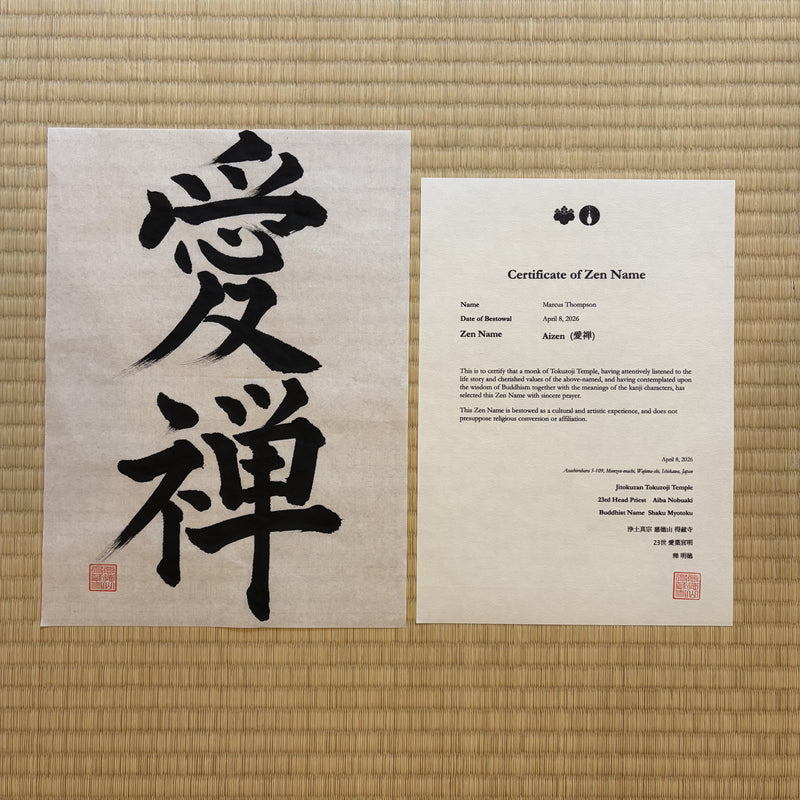 愛禅
Certificate of Zen Name
Name Marcus Thompson
Date of Bestowal April 8, 2026
Zen Name Aizen (愛禅)
This is to certify that a monk of Tokuzoji Temple, having attentively listened to the
life story and cherished values of the above-named, and having contemplated upon
the wisdom of Buddhism together with the meanings of the kanji characters, has
selected this Zen Name with sincere prayer.
This Zen Name is bestowed as a cultural and artistic experience, and does not
presuppose religious conversion or affiliation.
April 8, 2026
Monzen-machi, Wajima-shi, Ishikawa, Japan
Jitokuzan Tokuzoji Temple
23rd Head Priest Aiba Nobuaki
Buddhist Name Shaku Myotoku
浄土真宗 慈徳山 得藏寺
23世 愛葉宣明
釋 明徳